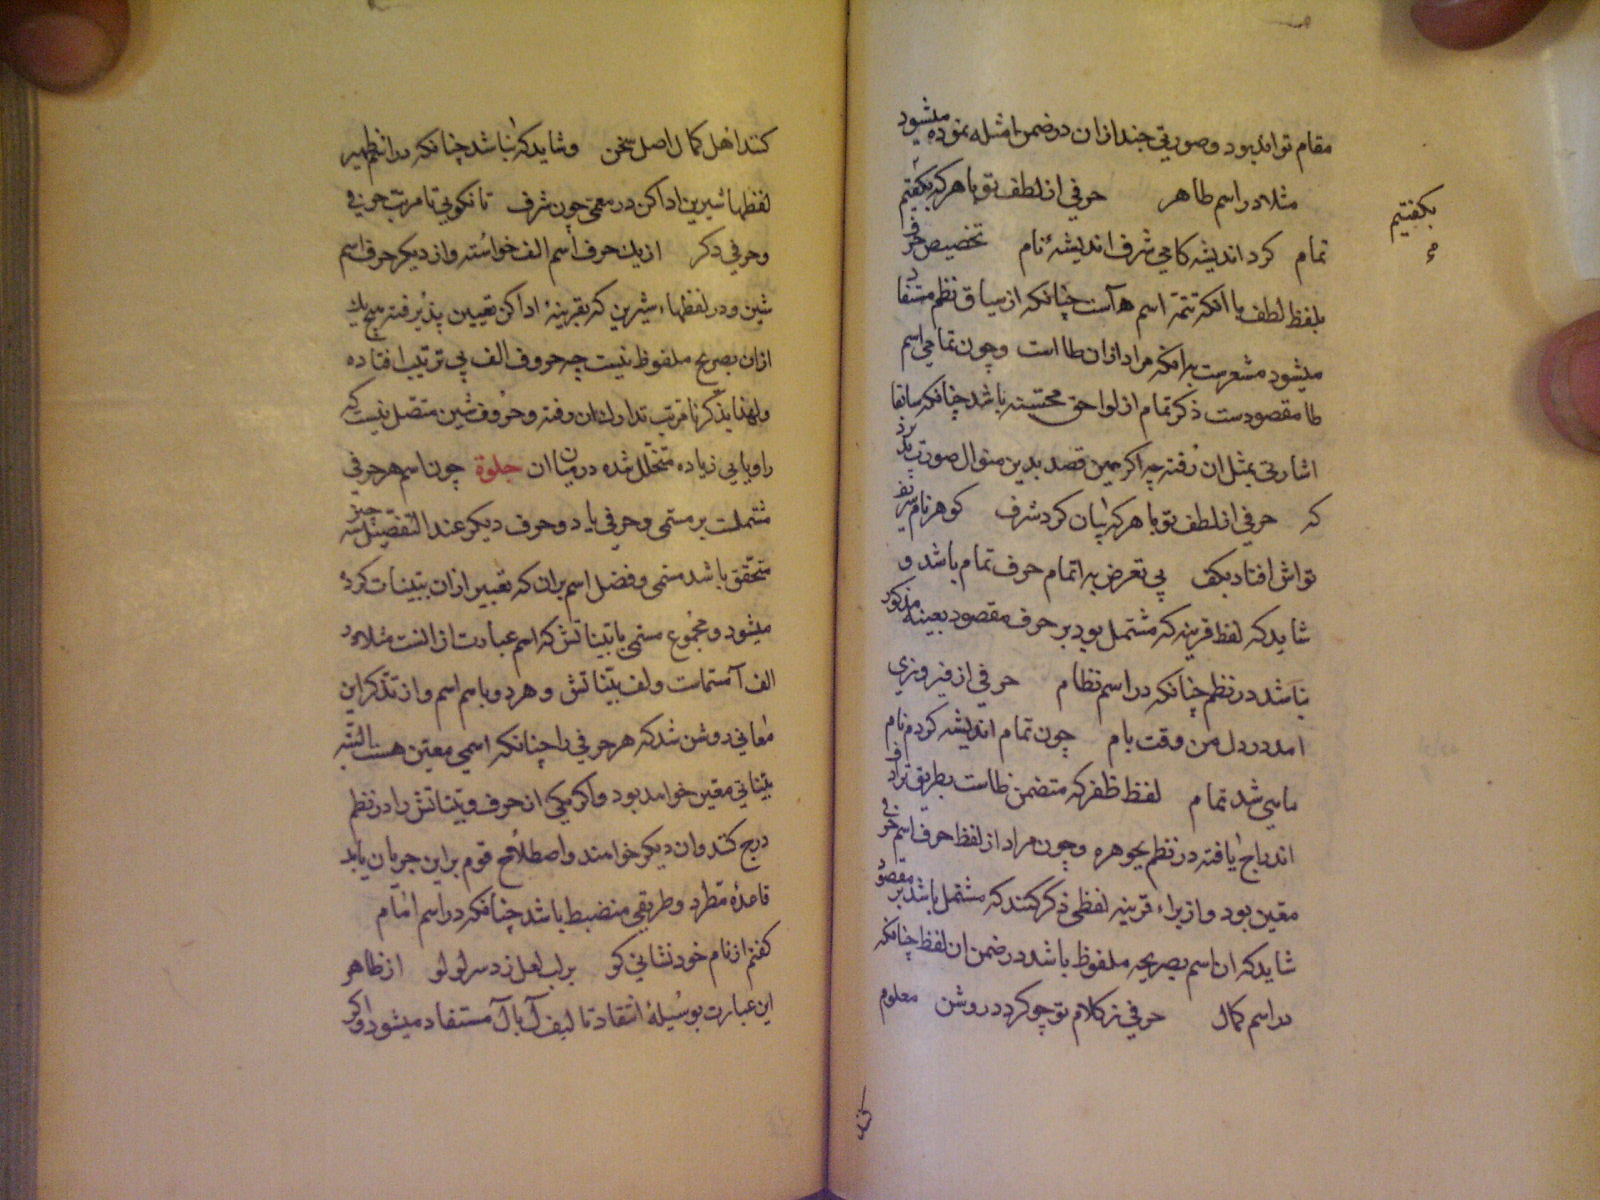 مقام تواند بود و صورتی چند ازان در ضمن امثله نموده میشود
مثلا در اسم طاهر حرفی از لطف تو با هر که بگفتیم
بگفتیم
تمام کرد اندیشه کامی شرف اندیشهٔ نام تخصیص حرف
بلفظ لطف با آنکه تتمهٔ اسم هر آست چنانکه از سیاق نظم مستفاد
میشود مشعرست برانکه مراد ازان طا است و چون تمامی اسم
طا مقصودست ذکر تمام از لواحق محسنه باشد چنانکه سابقا
اشارتی بمثل ان رفته چه اکر همین قصد بدین منوال صورت
که حرفی از لطف تو با هر که بیان کرد شرف کوهر نام
تو اش افتاد بکف بی تعرض به اتمام حرف تمام باشد و
شاید که لفظ قرینه که مشتمل بود بر حرف مقصود بعینه مذکور
نباشد در نظم چنانکه در اسم نظام حرفی از فیروزی
امد در دل من وقت بام چون تمام اندیشه کردم نام
مامی شد تمام لفظ ظفر که متضمن ظاست بطریق ترادف
اندراج یافته در نظم بجوهره و چون مراد از لفظ حرف اسم حرفی
معین بود و از برای قرینه لفظی ذکر کنند که مشتمل باشد بر مقصود
شاید که ان اسم بصریحه ملفوظ باشد در ضمن ان لفظ چنانکه
در اسم کمال حرفی ز کلام تو چو کردد روشن معلوم
کند اهل کمال اصل سخن و شاید که نباشد چنانکه در اسم ظهیر
لفظها شیرین ادا کن در معمی چون شرف تا نکویی تا مرتب حرفی
و حرفی دکر از یک حرف اسم الف خواسته و از دیکر حرف اسم
شین و در لفظهاء شیرین که بقرینهٔ ادا کن تعیین پذیرفته هیچ یک
ازان بصریح ملفوظ نیست چه حروف الف بی ترتیب افتاده
ولهذا بذکر نا مرتب تدارک ان رفته و حروف شین متصل نیست که
را و یایی زیاده متخلل شده در میان ان جلوة چون اسم هر حرفی
مشتملست بر مسمی و حرفی یا دو حرف دیکر عند التفصیل سه چیز
متحقق باشد مسمی و فضل اسم بران که تعبیر ازان ببینات کرده
میشود و مجموع مسمی با بیناتش که اسم عبارت از انست مثلا در
الف آ مسماست و لف بیناتش و هر دو باسم اسم و از تذکر این
معانی روشن شد که هر حرفی را چنانکه اسمی معین هست البته
بیناتی معین خواهد بود و اکر یکی از حرف و بیناتش را در نظم
درج کنند وان دیکر خواهند و اصطلاح قوم بر این جریان یابد
قاعدهٔ مطرد و طریقی منضبط باشد چنانکه در اسم امام
کفتم از نام خود نشانی کو بر لب لعل زد سر لولو از ظاهر
این عبارت بوسیلهٔ انتقاد تالیف آ با آ مستفاد میشود و اکر